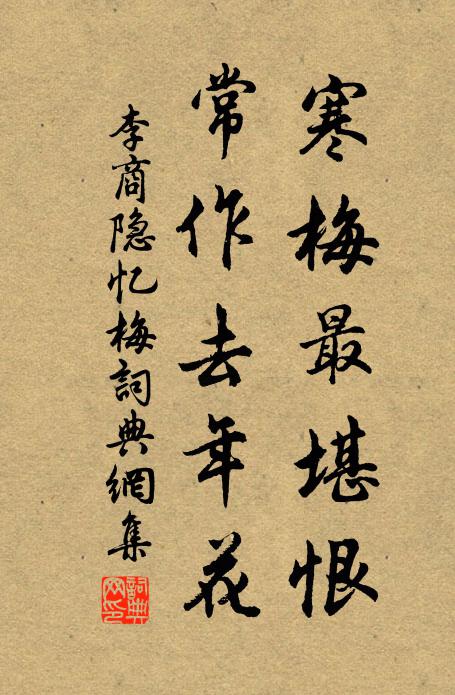 寒梅最堪恨
常作去年花
李商隐忆梅詞典網集
詞典網印